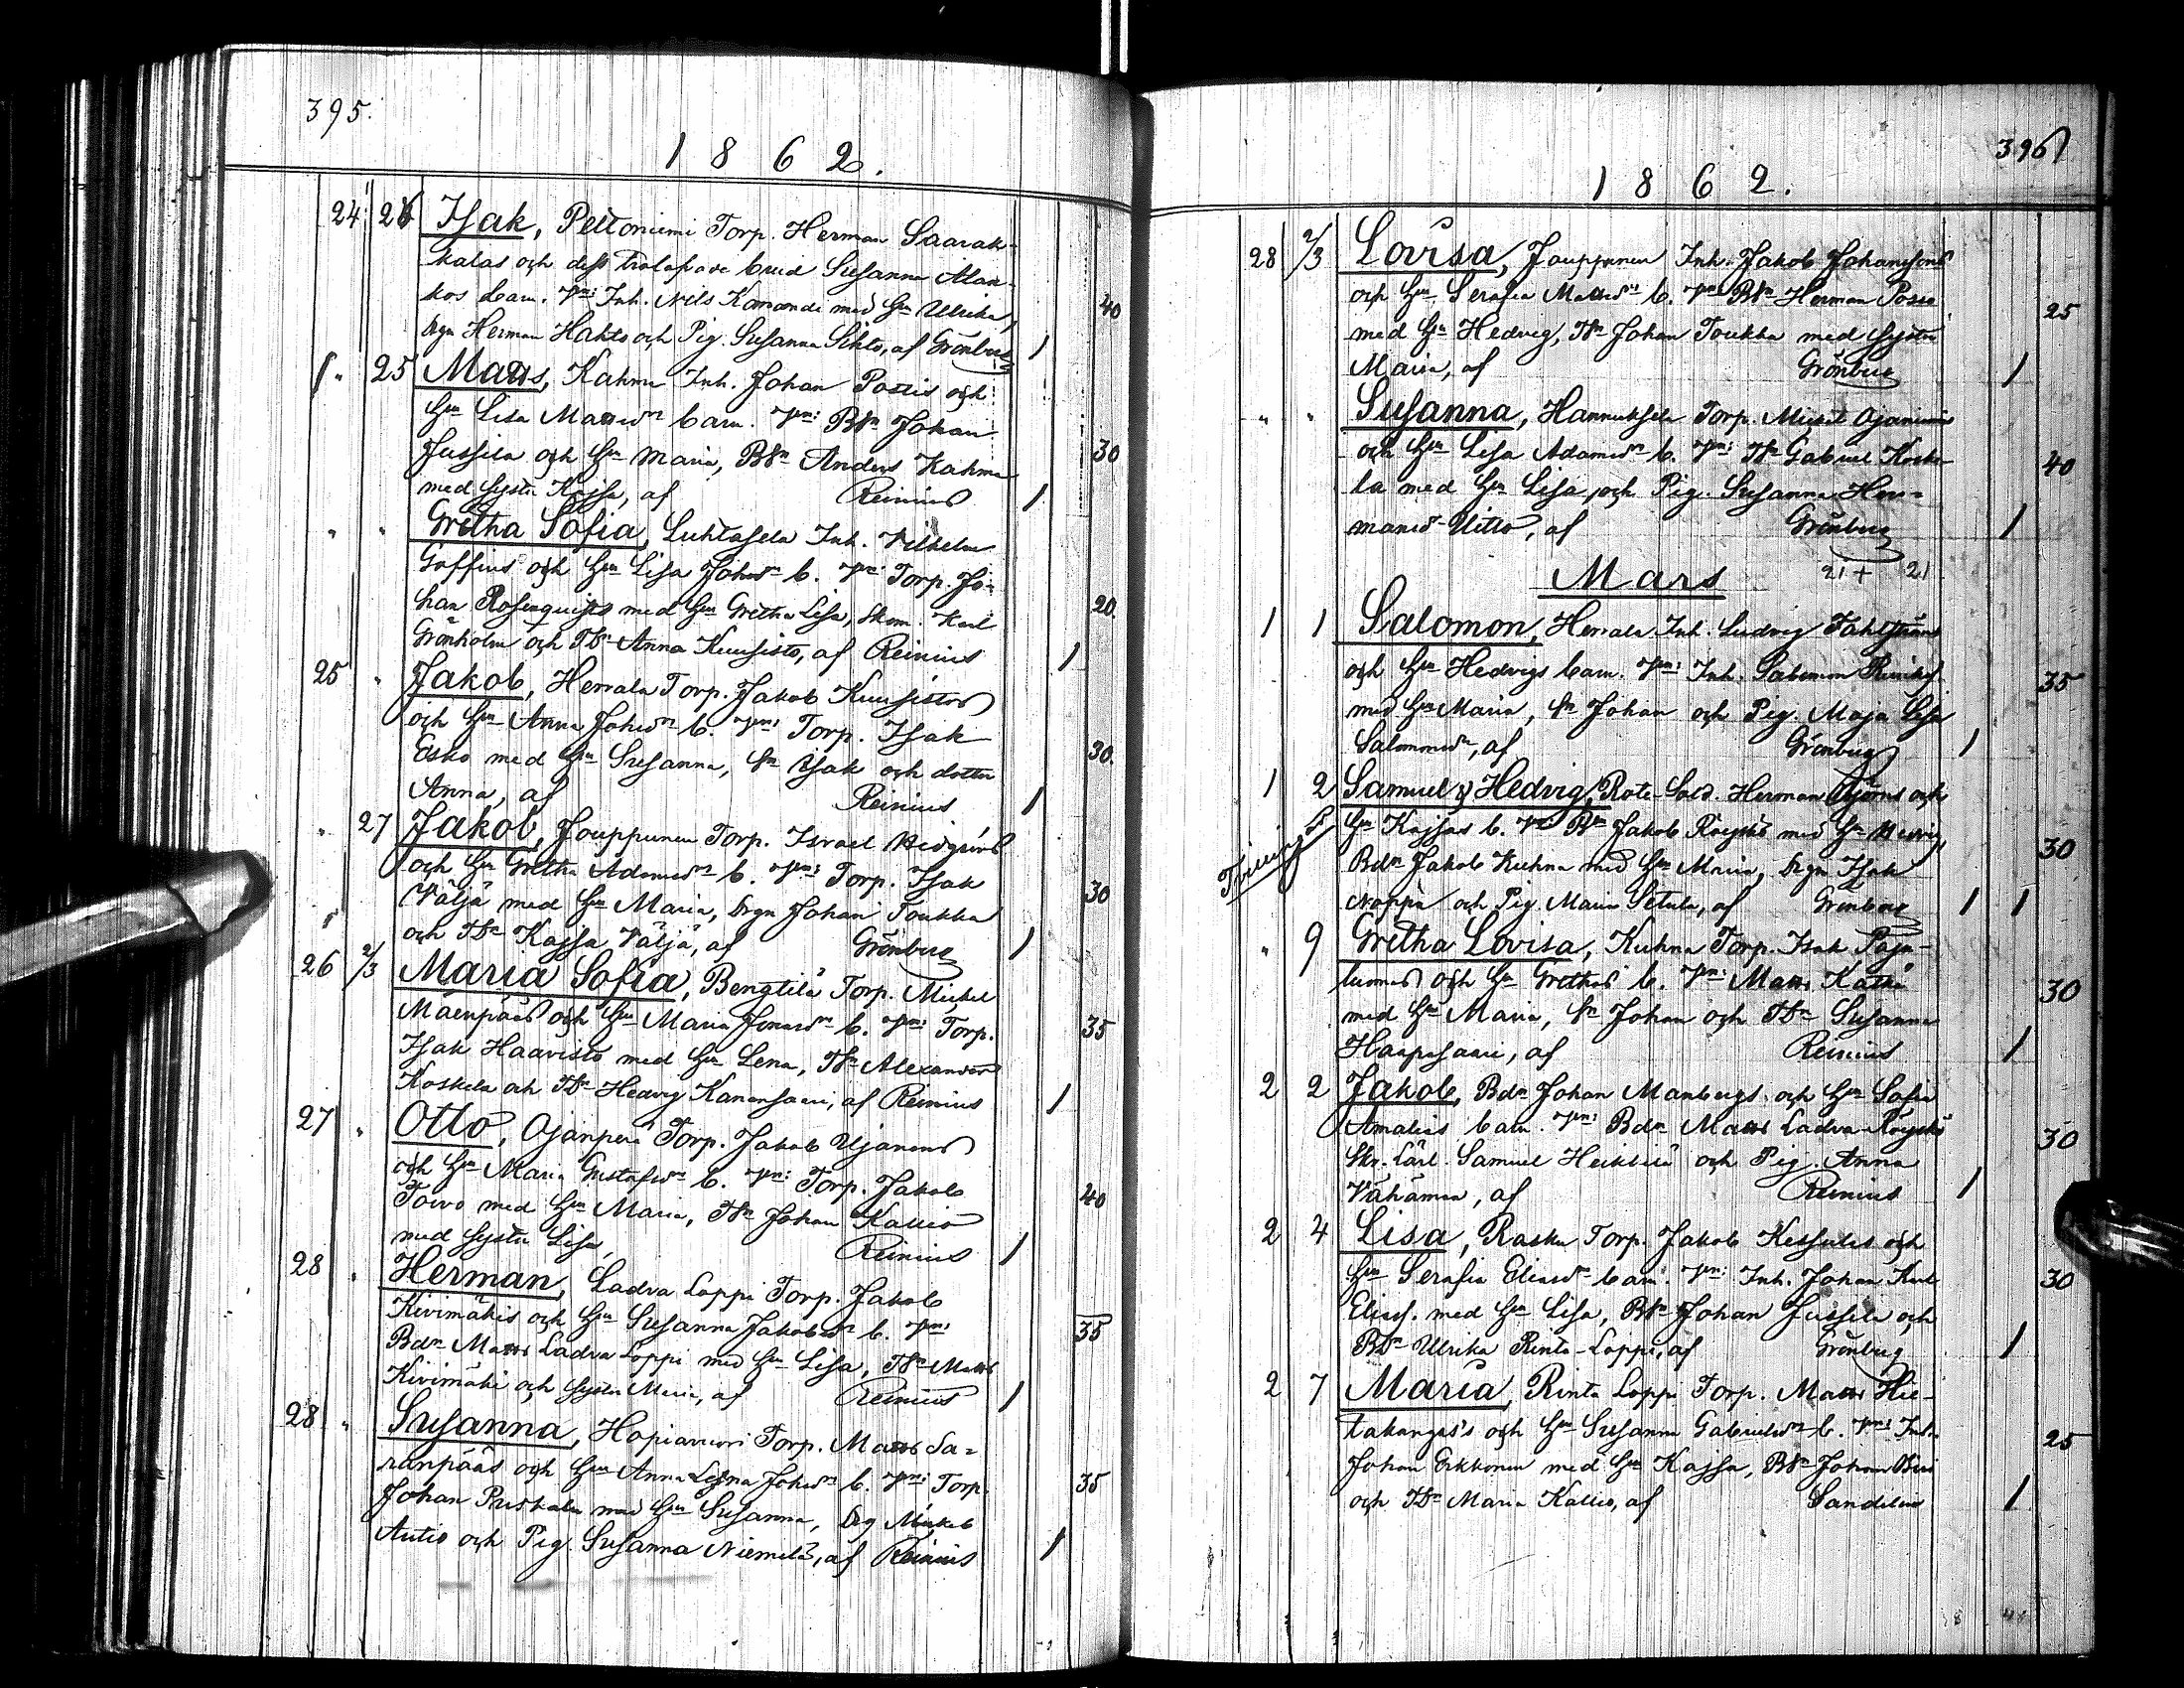 395.
1862.
24 26 Isak, Peltoniemi Torp. Herman Saarak-
kalas och dess trolofvade brud Susanna Alan-
kos barn. Vn: Inh. Nils Komondi med Hu Ulrika, 40
Drgn Herman Hahto och Pig. Susanna Sihto, af Grönberg 1
" 25 Matts, Kahma Inh. Johan Postis och
Hu Lisa Mattsdr barn. Vn: BSn Johan
Jussila och Hu Maria, BSn Anders Kahma 30
med syster Kajsa, af Reinius 1
" " Gretha Sofia, Luhtasela Inh. Vilhelm
Goffius och Hu Lisa Johsdr b. Vn: Torp. Jo-
han Rosenquist med Hu Gretha Lisa, Skom. Karl 20.
Grönholm och TDr Anna Kuusisto, af Reinius 1
25 " Jakob, Herrala Torp. Jakob Kuusistos
och Hu Anna Johsdr b. Vn: Torp. Isak
Esko med Hu Susanna, Sn Isak och dotter 30.
Anna, af Reinius 1
" 27 Jakob, Jouppunen Torp. Israel
och Hu Gretha Adamsdr b. Vn: Torp. Isak
Väljä med Hu Maria, Drgn Johan Toukka 30
och TDr Kajsa Väljä, af Grönberg 1
26 2/3 Maria Sofia, Bengtilä Torp. Michel
Mäenpääs och Hu Maria Jonasdr b. Vn: Torp.
Isak Haavisto med Hu Lena, TSn Alexander 35
Koskela och TDr Hedvig Kanansaari, af Reinius 1
27 " Otto, Ojanperä Torp. Jakob Ujanens
och Hu Maria Gustafsdr b. Vn: Torp. Jakob
Toivo med Hu Maria, TSn Johan Kallio 40
med syster Lisa, Reinius 1
28 " Herman, Ladva Loppi Torp. Jakob
Kivimäkis och Hu Susanna Jakobsdr b. Vn:
Bdn Matts Ladva Loppi med Hu Lisa, TSn Matts 35
Kivimäki och syster Maria, af Reinius 1
28 " Susanna, Torp. Matts Sa-
ranpääs och Hu Anna Lejna Johsdr b. Vn: Torp.
Johan med Hu Susanna, Drg Mickel 35
Autio och Pig. Susanna Niemelä, af Reinius 1
396
1862.
28 2/3 Lovisa, Jouppunen Inh. Jakob Johanssons
och Hu Serafia Mattsdr b. Vn: BSn Herman Posio 25
med Hu Hedvig, TSn Johan Toukka med syster
Maria, af Grönberg 1
" " Susanna, Hannuksela Torp. Mickel Ojaniemis
och Hu Lisa Adamsdr b. Vn: TSn Gabriel Koske- 40
la med Hu Lisa, och Pig. Susanna Her-
mansdr Uitto, af Grönberg 1
Mars 21 + 21
1 1 Salomon, Herrala Inh. Ludvig
och Hu Hedvigs barn. Vn: Inh. Salomon 35
med Hu Maria, Sn Johan och Pig. Maja Lisa
Salomonsdr, af Grönberg 1
1 2 Samuel & Hedvig, Rote-Sold. Herman och
Hu Kajsas b. Vn: Bdn Jakob med Hu Hedvig, 30
Bdn Jakob Kuhna med Hu Maria, Drgn Isak
Noppa och Pig. Maria Setula, af Grönberg 1 1
" 9 Gretha Lovisa, Kuhna Torp. Isak Paju-
luomas och Hu Grethas b. Vn: Matts 30
med Hu Maria, Sn Johan och TDr Susanna
Haapasaari, af Reinius 1
2 2 Jakob, Bdn Johan Manbergs och Hu Sofia
Amalias barn. Vn: Bdn Matts Ladva 30
Skr. Lärl. Samuel Heikkilä och Pig. Anna
Vähämaa, af Reinius 1
2 4 Lisa, Rasku Torp. Jakob och
Hu Serafia Eliasdr barn. Vn: Inh. Johan Karl 30
Eliass. med Hu Lisa, BSn Johan Jussila och
BDr Ulrika Rinta-Loppi, af Grönberg 1
2 7 Maria, Rinta Loppi Torp. Matts Hie-
takangas's och Hu Susanna Gabrielsdr b. Vn: Inh. 25
Johan Erkkonen med Hu Kajsa, BSn Johan
och TDr Maria Kallio, af Sandelius 1